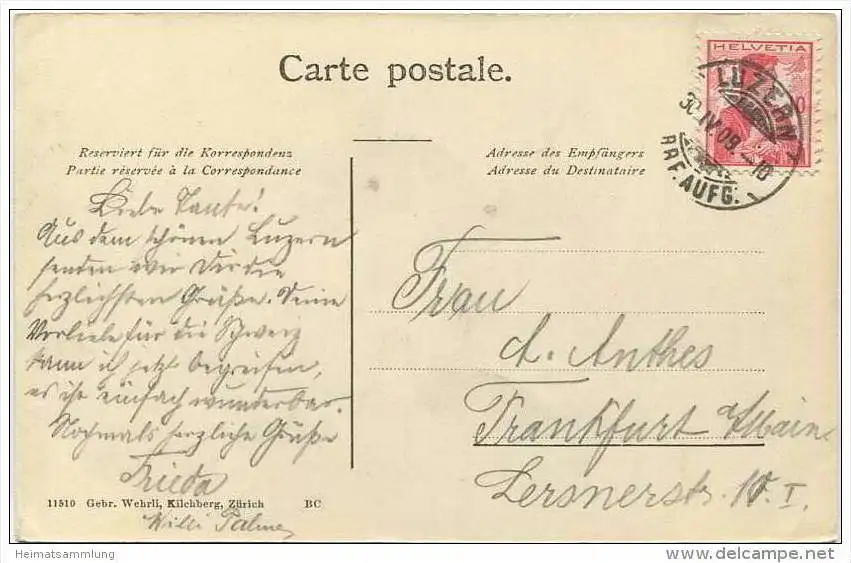 Carte postale.
HELVETIA
LUZERN
30.IV.09.-10
BRF.AUFG.
Reserviert für die Korrespondenz
Partie réservée à la Correspondance
Adresse des Empfängers
Adresse du Destinataire
Liebe Tante!
Aus dem schönen Luzern
senden wir Dir die
herzlichsten Grüße. Deine
Vorliebe für die Schweiz
kann ich jetzt begreifen,
es ist einfach wunderbar.
Nochmals herzliche Grüße
Frieda
Willi Palmer
Frau
A. Anthes
Frankfurt a/Main
Lersnerstr. 10. I.
11510 Gebr. Wehrli, Kilchberg, Zürich BC
Heimatsammlung
delcampe.net